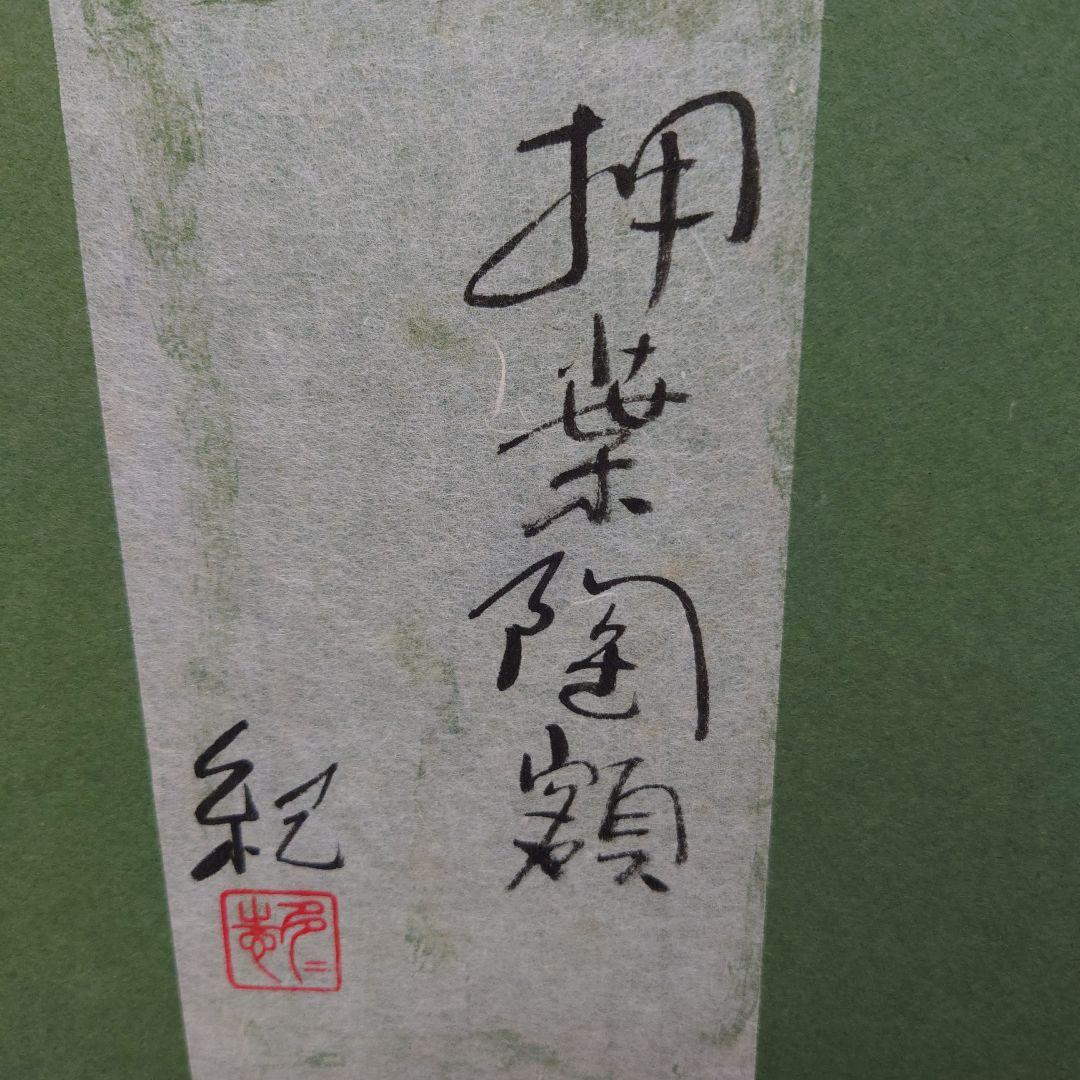 押葉陶額
紀